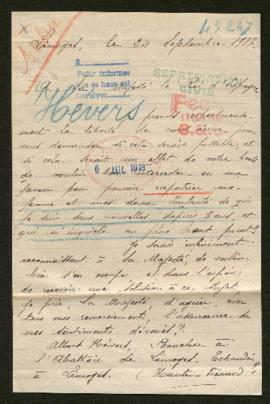 43247
Limoges, le 24 Septembre 1917.
Pedir informes
REPATRIACION
CIVIL
A Sa Majesté le Roi d'Espagne
Hevers
prends respectueusement la liberté de
vous demander si cela serait possible, et
si cela serait un effet de votre bonté
de vouloir en ma
6 JUL 1918
faveur pour pouvoir rapatrier ma
femme et mes deux enfants de qui
je suis sans nouvelles depuis 3 ans, et
qui m'inquiète au plus haut point?
Je serais infiniment
reconnaissant à sa Majesté, de vouloir
bien et dans l'espoir
de recevoir une solution à ce sujet
je prie sa Majesté d'agréer, avec
tous mes remerciements, l'assurance de
mes sentiments dévoués?
Albert Hévers, Boucher à
l'Abattoir de Limoges
à Limoges. (Haute-Vienne)